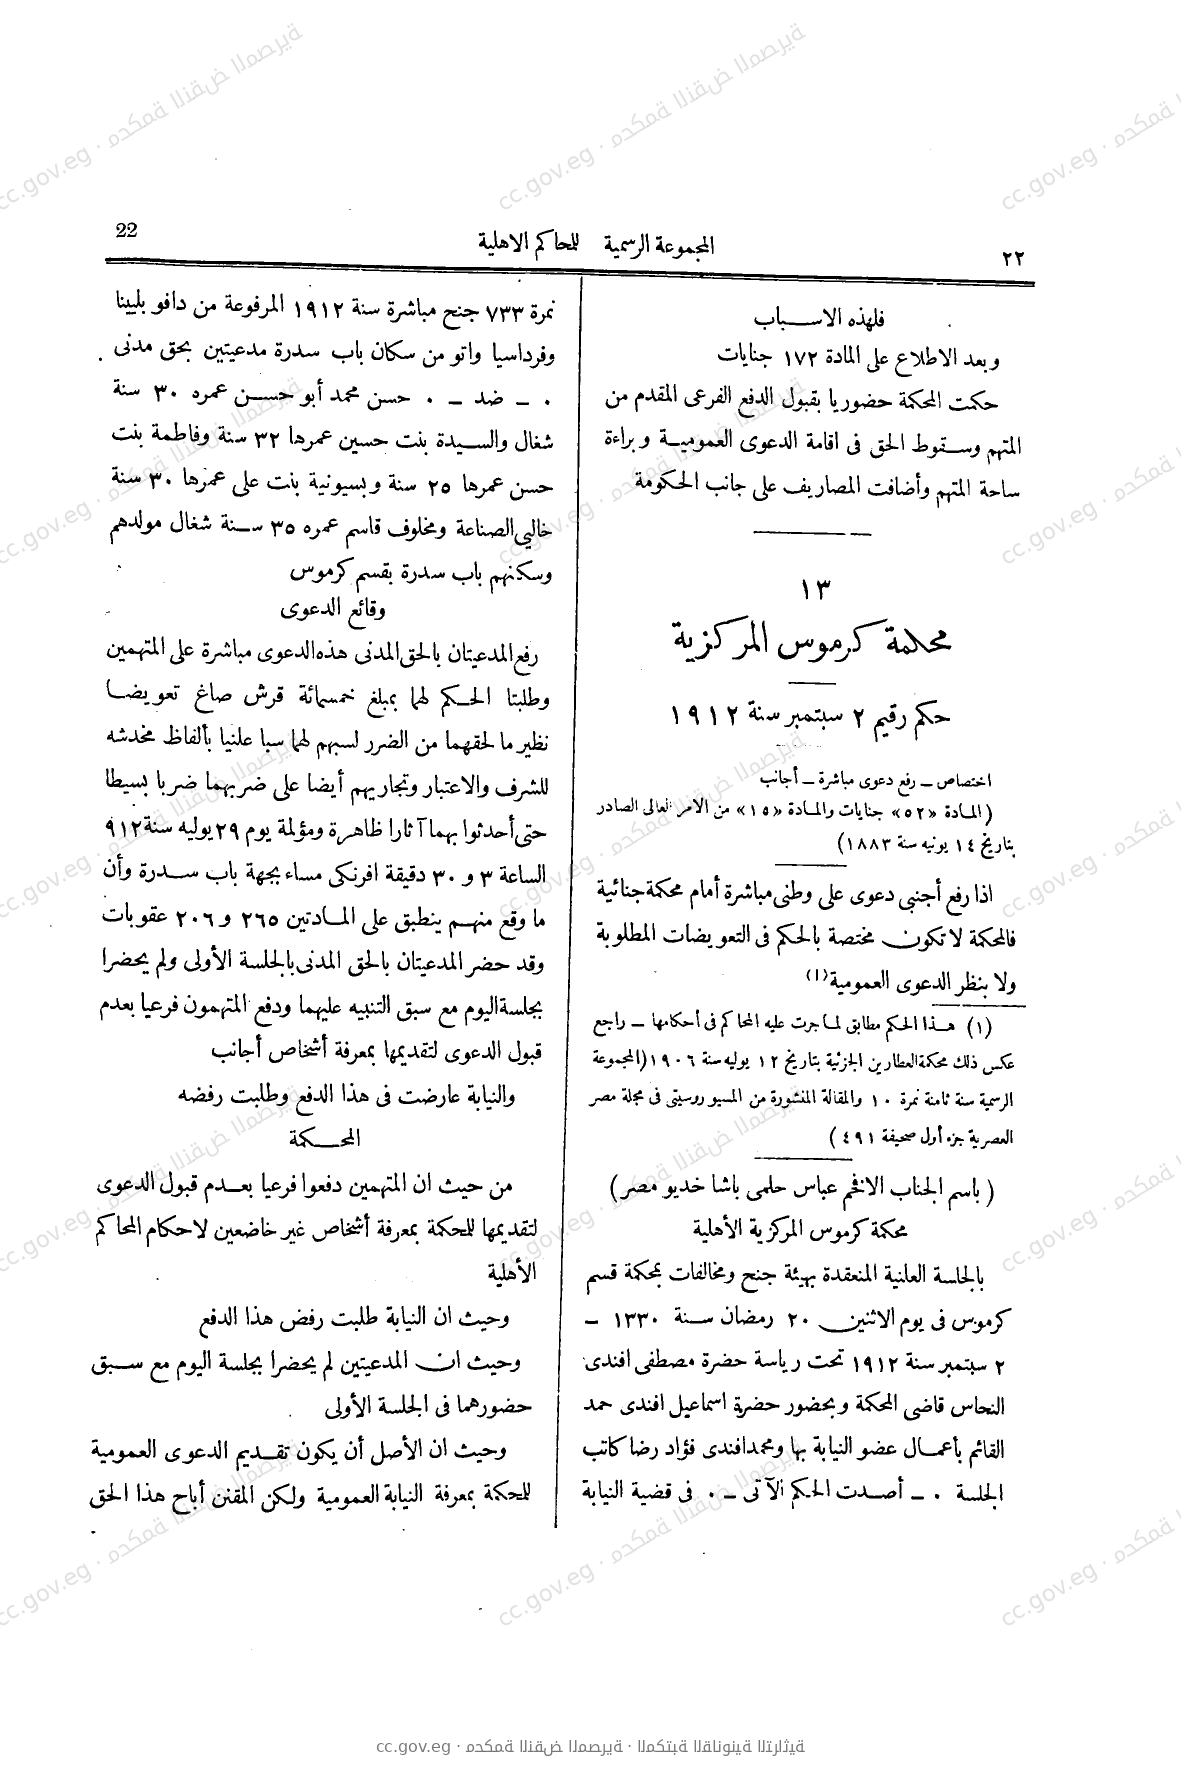 22
المجموعة الرسمية للمحاكم الاهلية
٢٢
فلهذه الاسباب
وبعد الاطلاع على المادة ١٧٢ جنايات
حكمت المحكمة حضوريا بقبول الدفع الفرعى المقدم من
المتهم وسقوط الحق فى اقامة الدعوى العمومية وبراءة
ساحة المتهم وأضافت المصاريف على جانب الحكومة
١٣
محكمة كرموس المركزية
حكم رقيم ٢ سبتمبر سنة ١٩١٢
اختصاص – رفع دعوى مباشرة – أجانب
(المادة «٥٢» جنايات والمادة «١٥» من الامر العالى الصادر
بتاريخ ١٤ يونيه سنة ١٨٨٣)
اذا رفع أجنبى دعوى على وطنى مباشرة أمام محكمة جنائية
فالمحكمة لا تكون مختصة بالحكم فى التعويضات المطلوبة
ولا بنظر الدعوى العمومية(١)
(١) هذا الحكم مطابق لما جرت عليه المحاكم فى أحكامها – راجع
عكس ذلك محكمة العطارين الجزئية بتاريخ ١٢ يوليه سنة ١٩٠٦ (المجموعة
الرسمية سنة ثامنة نمرة ١٠ والمقالة المنشورة من المسيو روسيتى فى مجلة مصر
العصرية جزء أول صحيفة ٤٩١)
(باسم الجناب الافخم عباس حلمى باشا خديو مصر)
محكمة كرموس المركزية الأهلية
بالجلسة العلنية المنعقدة بهيئة جنح ومخالفات بمحكمة قسم
كرموس فى يوم الاثنين ٢٠ رمضان سنة ١٣٣٠ –
٢ سبتمبر سنة ١٩١٢ تحت رياسة حضرة مصطفى افندى
النحاس قاضى المحكمة وبحضور حضرة اسماعيل افندى حمد
القائم بأعمال عضو النيابة بها ومحمد افندى فؤاد رضا كاتب
الجلسة ٠ – أصدت الحكم الآتى – ٠ فى قضية النيابة
نمرة ٧٣٣ جنح مباشرة سنة ١٩١٢ المرفوعة من دافو بليينا
وفرداسيا واتو من سكان باب سدرة مدعيتين بحق مدنى
٠ – ضد – ٠ حسن محمد أبو حسن عمره ٣٠ سنة
شغال والسيدة بنت حسين عمرها ٣٢ سنة وفاطمة بنت
حسن عمرها ٢٥ سنة وبسيونية بنت على عمرها ٣٠ سنة
خاليى الصناعة ومخلوف قاسم عمره ٣٥ سنة شغال مولدهم
وسكنهم باب سدرة بقسم كرموس
وقائع الدعوى
رفع المدعيتان بالحق المدنى هذه الدعوى مباشرة على المتهمين
وطلبتا الحكم لهما بمبلغ خمسمائة قرش صاغ تعويضا
نظير ما لحقهما من الضرر لسبهم لهما سبا علنيا بألفاظ مخدشه
للشرف والاعتبار وتجاريهم أيضا على ضربهما ضربا بسيطا
حتى أحدثوا بهما آثارا ظاهرة ومؤلمة يوم ٢٩ يوليه سنة ٩١٢
الساعة ٣ و ٣٠ دقيقة افرنكى مساء بجهة باب سدرة وأن
ما وقع منهم ينطبق على المادتين ٢٦٥ و ٢٠٦ عقوبات
وقد حضر المدعيتان بالحق المدنى بالجلسة الأولى ولم يحضرا
بجلسة اليوم مع سبق التنبيه عليهما ودفع المتهمون فرعيا بعدم
قبول الدعوى لتقديمها بمعرفة أشخاص أجانب
والنيابة عارضت فى هذا الدفع وطلبت رفضه
المحكمة
من حيث ان المتهمين دفعوا فرعيا بعدم قبول الدعوى
لتقديمها للمحكمة بمعرفة أشخاص غير خاضعين لاحكام المحاكم
الأهلية
وحيث ان النيابة طلبت رفض هذا الدفع
وحيث ان المدعيتين لم يحضرا بجلسة اليوم مع سبق
حضورهما فى الجلسة الأولى
وحيث ان الأصل أن يكون تقديم الدعوى العمومية
للمحكمة بمعرفة النيابة العمومية ولكن المقنن أباح هذا الحق
cc.gov.eg · محكمة النقض المصرية · المكتبة القانونية التراثية